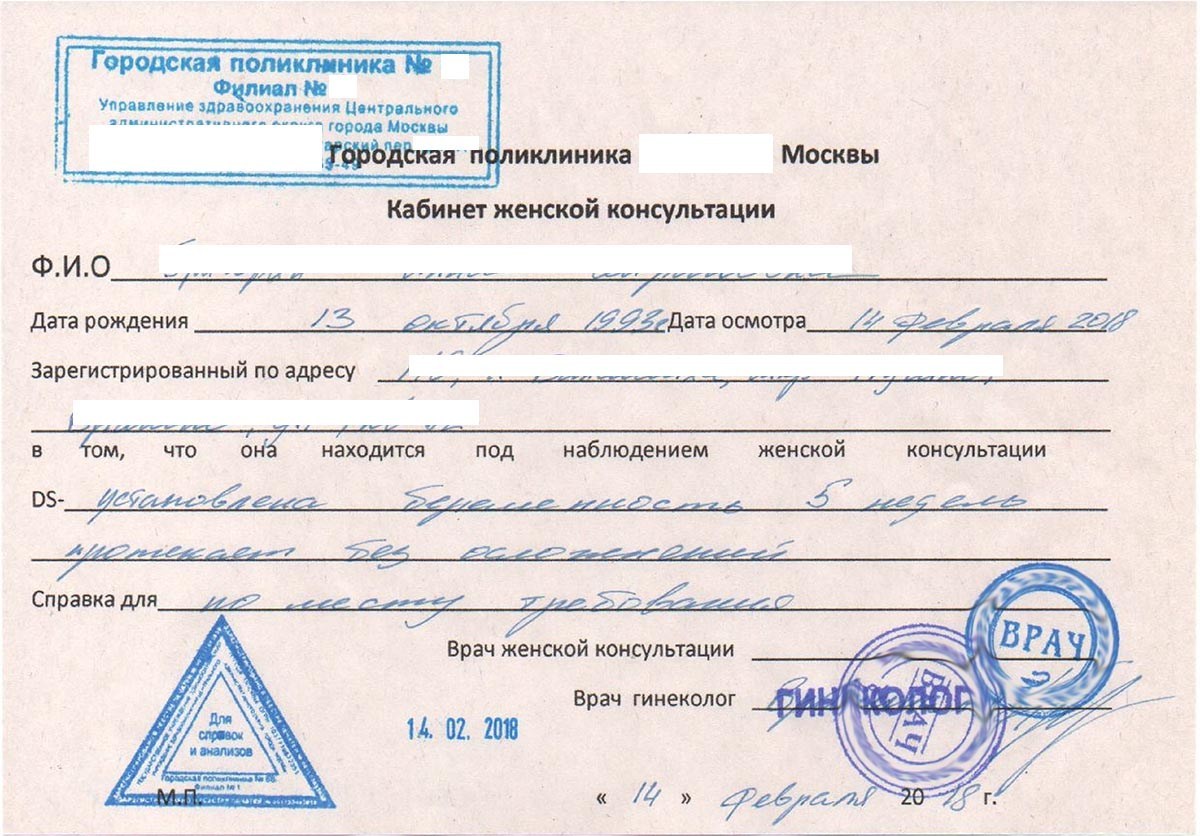 Городская поликлиника №
Филиал №
Управление здравоохранения Центрального
административного округа города Москвы
пер
Городская поликлиника Москвы
Кабинет женской консультации
Ф.И.О
Дата рождения 13 октября 1993г Дата осмотра 14 февраля 2018
Зарегистрированный по адресу
в том, что она находится под наблюдением женской консультации
DS- установлена беременность 5 недель
протекает без осложнений
Справка для по месту требования
Врач женской консультации
ВРАЧ
Врач гинеколог
ГИНЕКОЛОГ
ВРАЧ
Для
справок
и анализов
Городская поликлиника № 68
Филиал №1
14. 02. 2018
М.П.
« 14 » февраля 20 18 г.